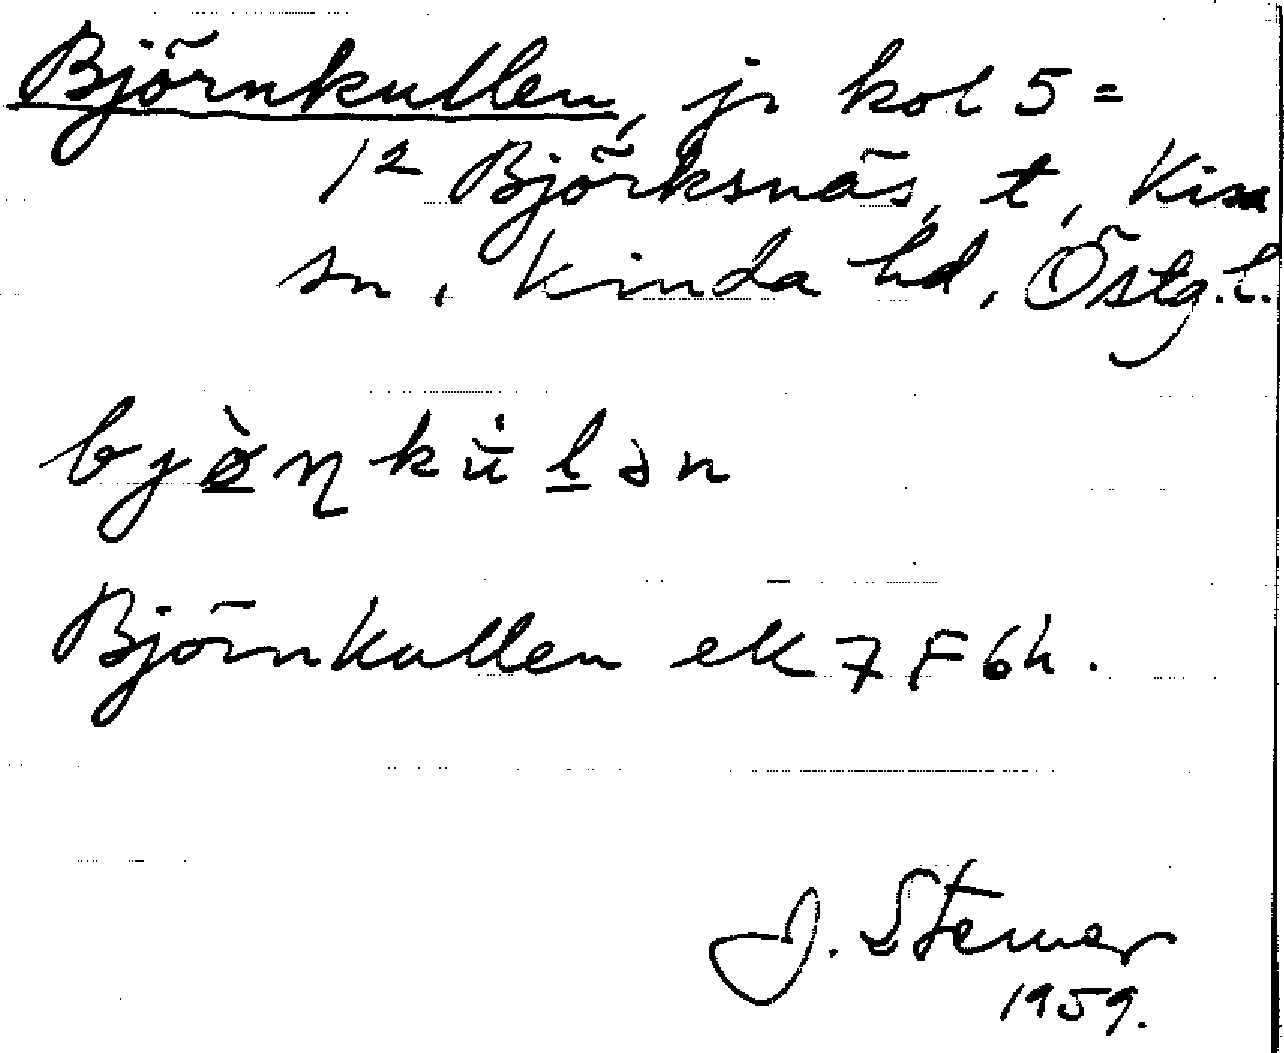 Björnkullen, jr kol 5 =
1² Björksnäs, t, Kisa
sn, Kinda hd, Östg. l.
bjö̀ŋku̇̄lən
Björnkullen ek 7 F 6h.
J. Sterner
1959.